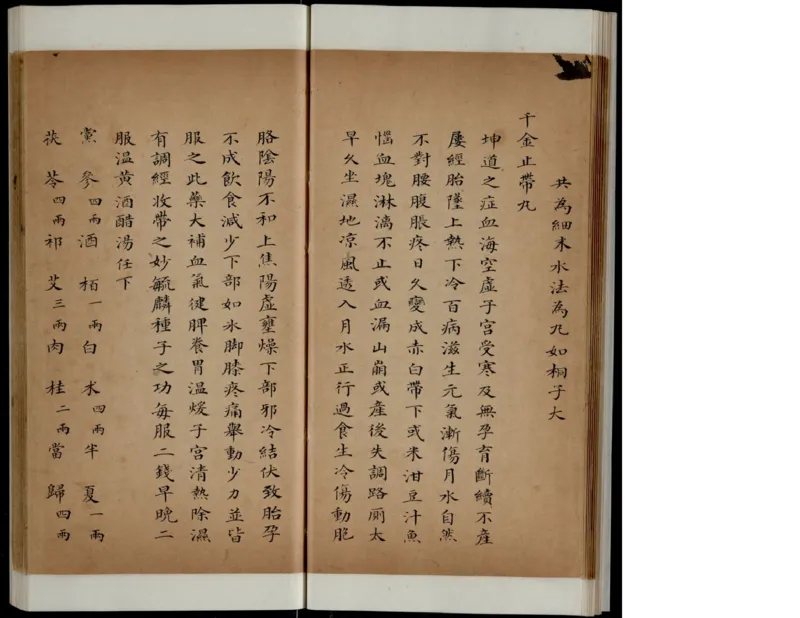 共為細末水法為丸如桐子大
千金止帶丸
坤道之症血海空虛子宮受寒及無孕育斷續不產
屢經胎墮上熱下冷百病滋生元氣漸傷月水自然
不對腰腹脹疼日久變成赤白帶下或米泔豆汁魚
惱血塊淋漓不止或血漏山崩或產後失調路厠太
早久坐濕地凉風透入月水正行過食生冷傷動胞
胳陰陽不和上焦陽虛壅燥下部邪冷結伏致胎孕
不成飲食減少下部如氷脚膝疼痛舉動少力並皆
服之此藥大補血氣健脾養胃溫煖子宮清熱除濕
有調經收帶之妙毓麟種子之功每服二錢早晚二
服溫黃酒醋湯任下
黨參四兩酒栢一兩白朮四兩半夏一兩
茯苓四兩祁艾三兩肉桂二兩當歸四兩